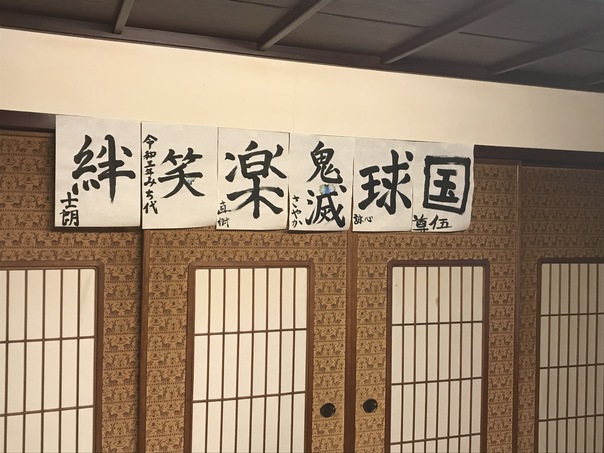 国
尊伍
球
詠心
鬼滅
さやか
楽
直樹
笑
令和三年みち代
絆
士朗